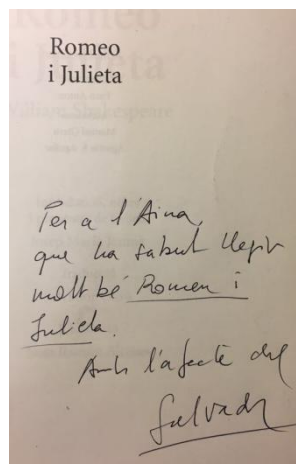 Romeo
i Julieta
Per a l'Aina,
que ha sabut llegir
molt bé Romeu i
Julieta.
Amb l'afecte del
Salvador